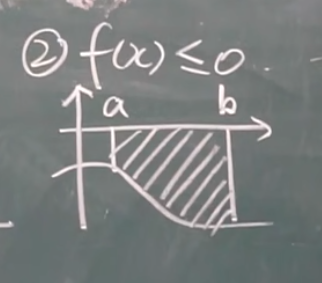 ② f(x) ≤ 0
a b